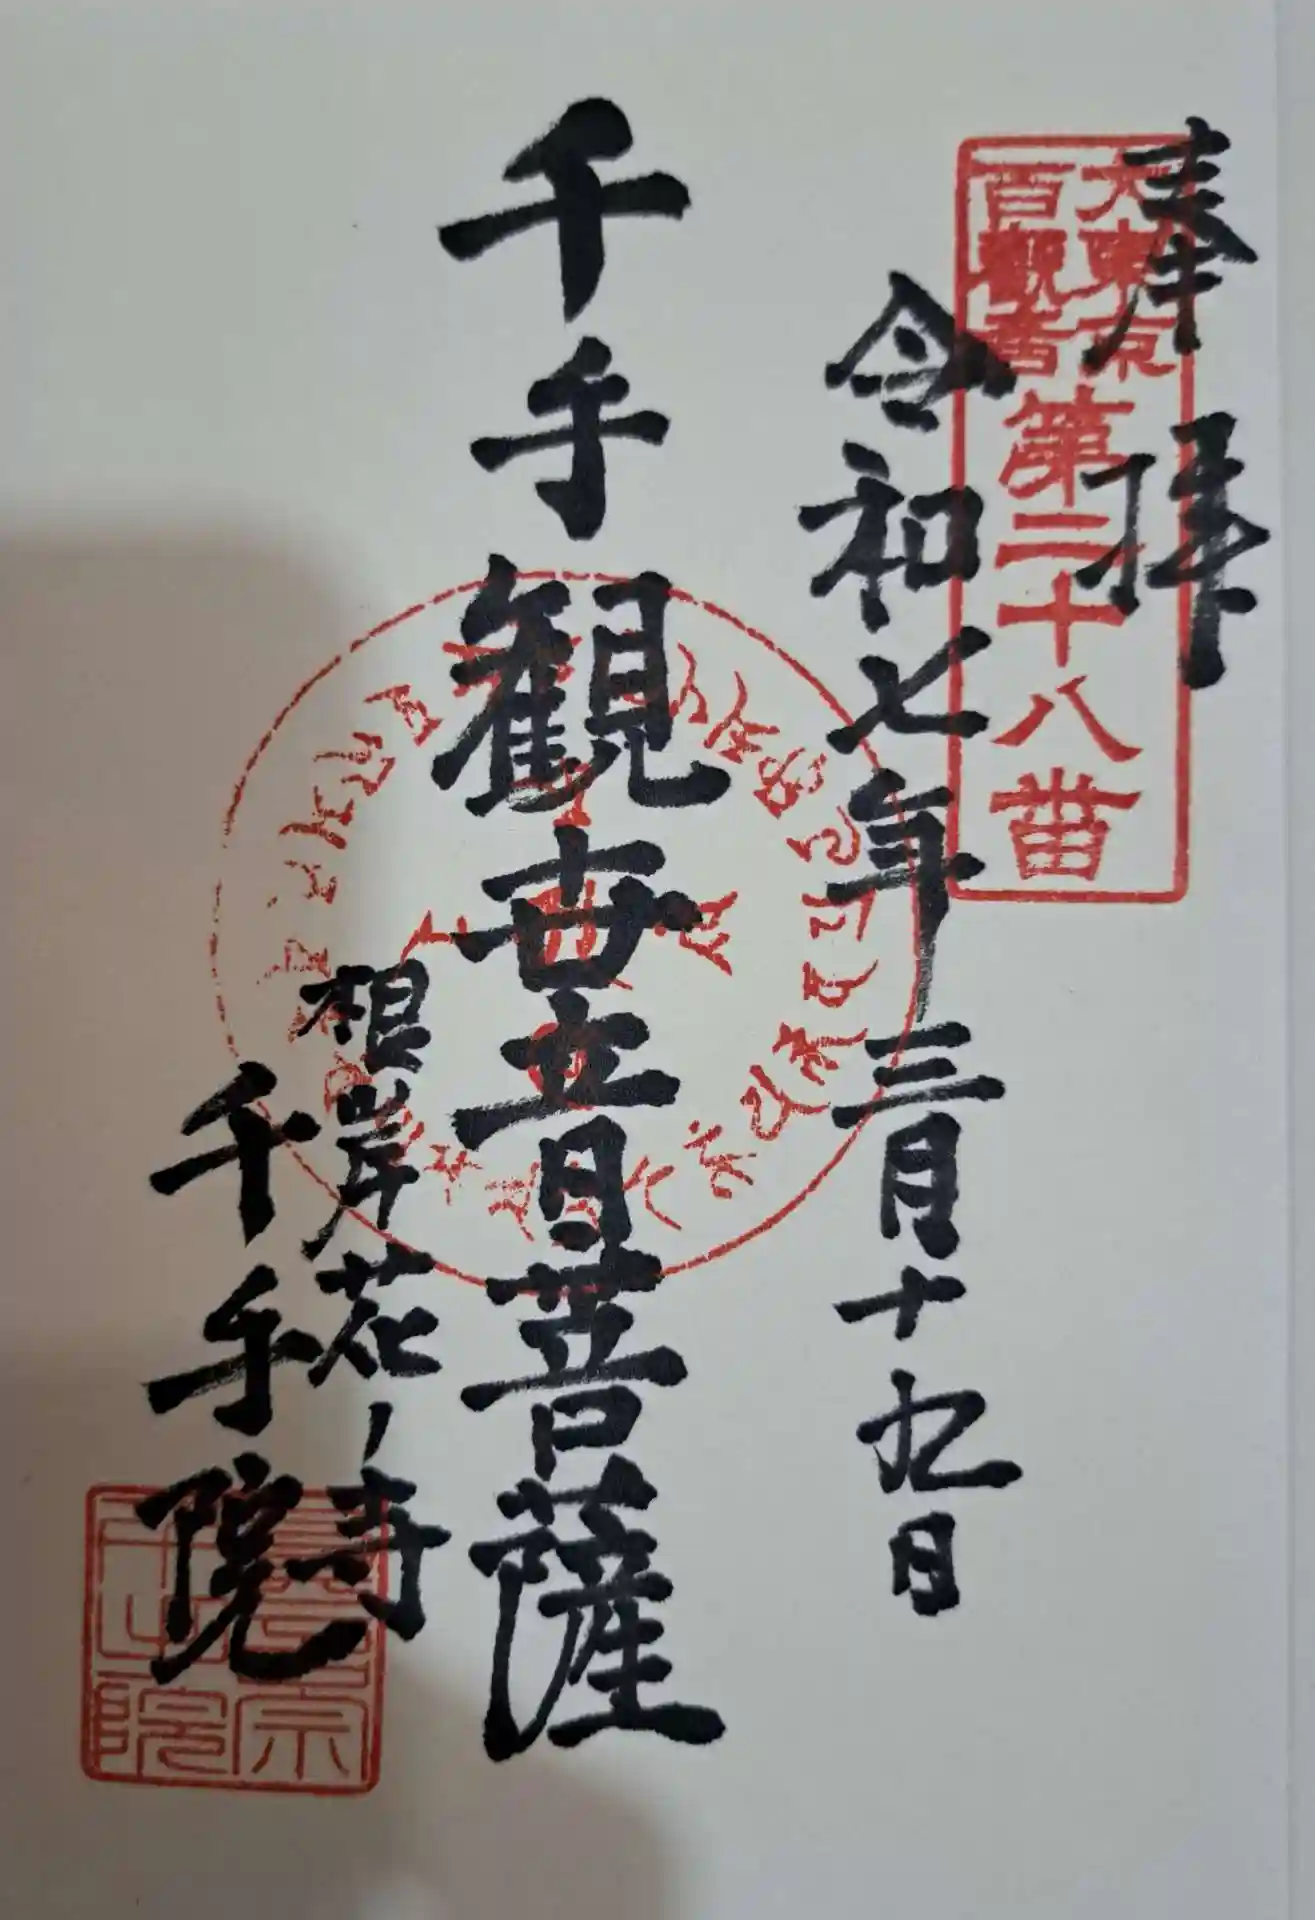 奉拝
大東京
百観音
第二十八番
令和七年三月十九日
千手観世音菩薩
根岸花ノ寺
千手院
真言宗
千手院